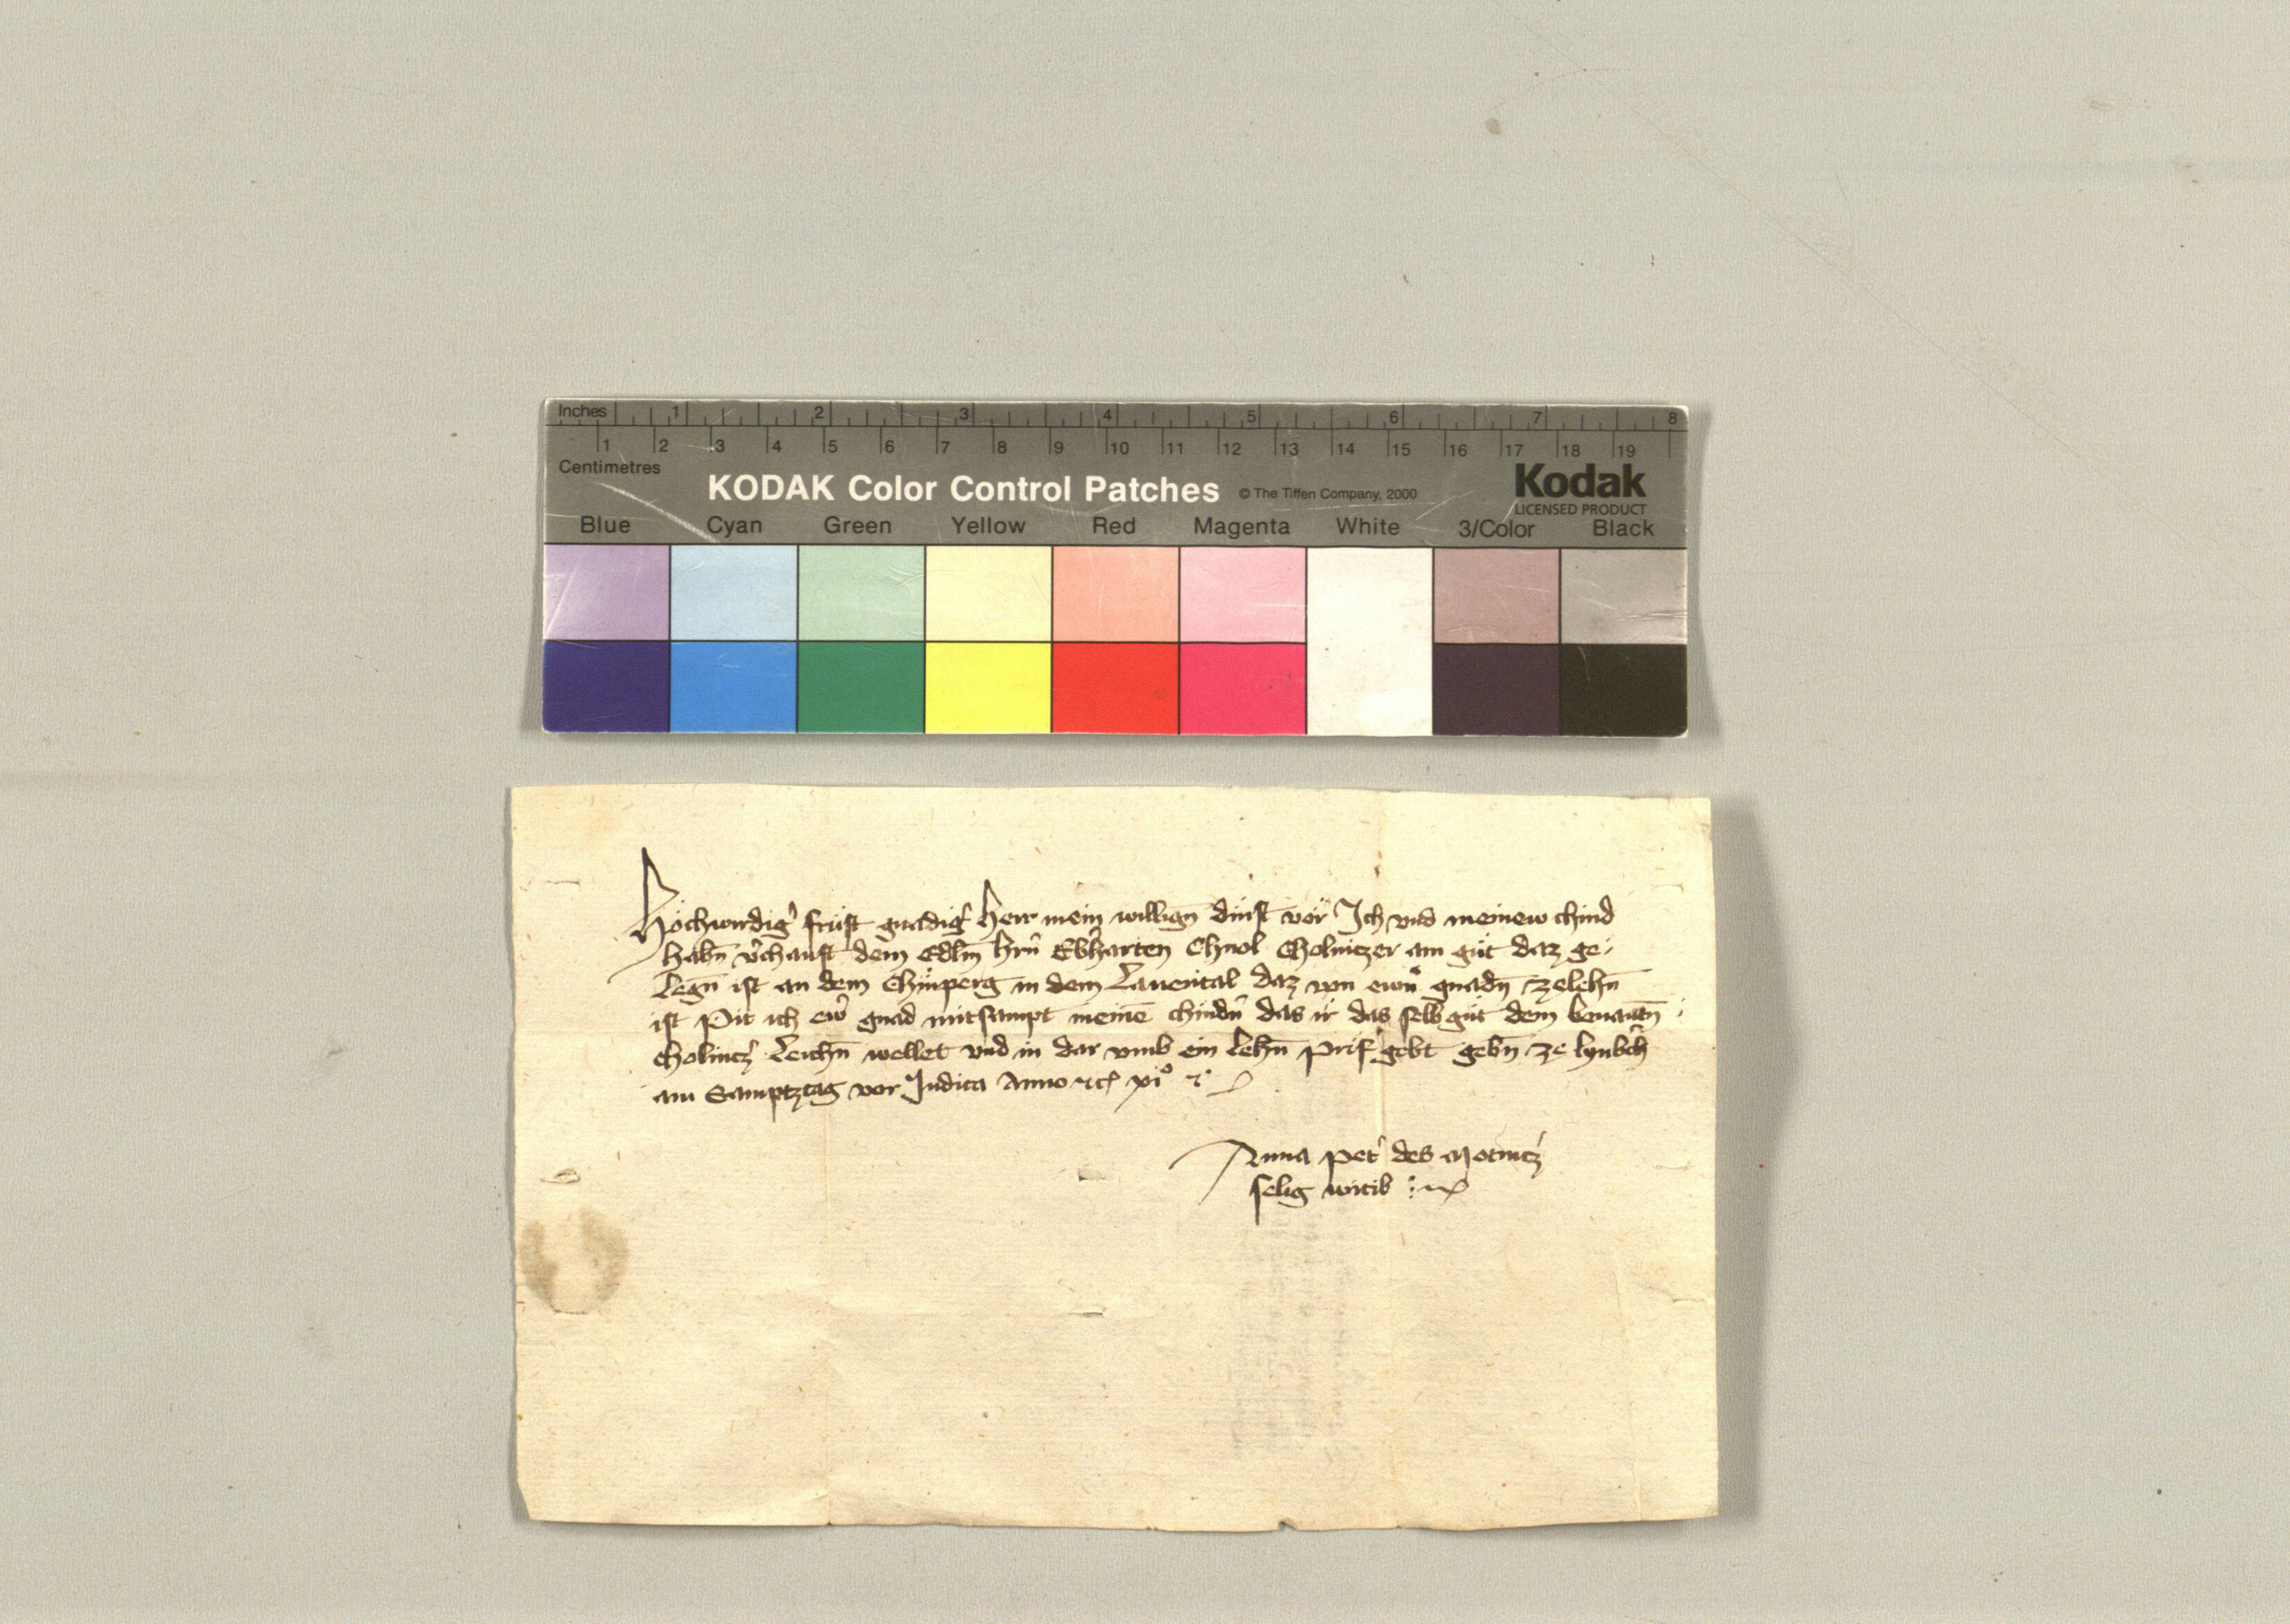 Inches 1 2 3 4 5 6 7 8
1 2 3 4 5 6 7 8 9 10 11 12 13 14 15 16 17 18 19
Centimetres
KODAK Color Control Patches © The Tiffen Company, 2000 Kodak
LICENSED PRODUCT
Blue Cyan Green Yellow Red Magenta White 3/Color Black
Hochwirdig' fürst gnadig' herr mein willign̄ dinst vor Ich vnd meinew chind
habn̄ v'chauft dem Edlm̄ hrn̄ Eb'harten Chol Cholniczer ain güt daz ge-
legn̄ ist an dem in dem Lauental daz von ewn̄ gnadn̄ ze lehn̄
ist Pit ich ew' gnad mitsampt meinē chindn̄ das ir das selb güt dem benantn̄
Cholnicz' leichn̄ wellet vnd in dar vmb ein lehn̄ prif gebt gebn̄ ze
am Samptztag vor Judica Anno xi°
Anna Pet' des
selig witib